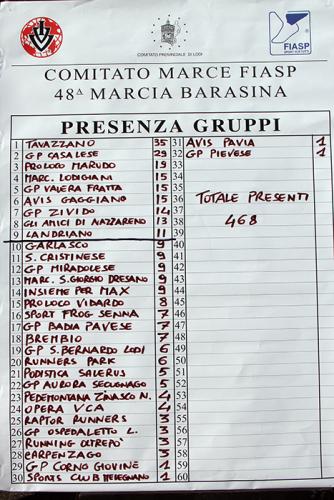 COMITATO PROVINCIALE DI LODI
FIASP
COMITATO MARCE FIASP
48ª MARCIA BARASINA
PRESENZA GRUPPI
1 TAVAZZANO 35
2 GP CASALESE 29
3 PROLOCO MARUDO 19
4 MARC. LODIGIANI 15
5 GP VALERA FRATTA 15
6 AVIS GAGGIANO 15
7 GP ZIVIDO 14
8 GLI AMICI DI NAZZARENO 13
9 LANDRIANO 11
10 GARLASCO 9
11 S. CRISTINESE 9
12 GP MIRADOLESE 9
13 MARC. S. GIORGIO DRESANO 9
14 INSIEME PER MAX 9
15 PROLOCO VIDARDO 8
16 SPORT FROG SENNA 7
17 GP BADIA PAVESE 7
18 BREMBIO 7
19 GP S. BERNARDO LODI 6
20 RUNNERS PARK 6
21 PODISTICA SALERUS 5
22 GP AURORA SECUGNAGO 5
23 PEDEMONTANA ZINASCO N. 4
24 OPERA VCA 4
25 RAPTOR RUNNERS 3
26 GP OSPEDALETTO L. 3
27 RUNNING OLTREPÒ 3
28 CARPENZAGO 3
29 GP CORNO GIOVINE 1
30 SPORTS CLUB MELEGNANO 1
31 AVIS PAVIA 1
32 GP PIEVESE 1
33
34
35
36 TOTALE PRESENTI
37
38 468
39
40
41
42
43
44
45
46
47
48
49
50
51
52
53
54
55
56
57
58
59
60